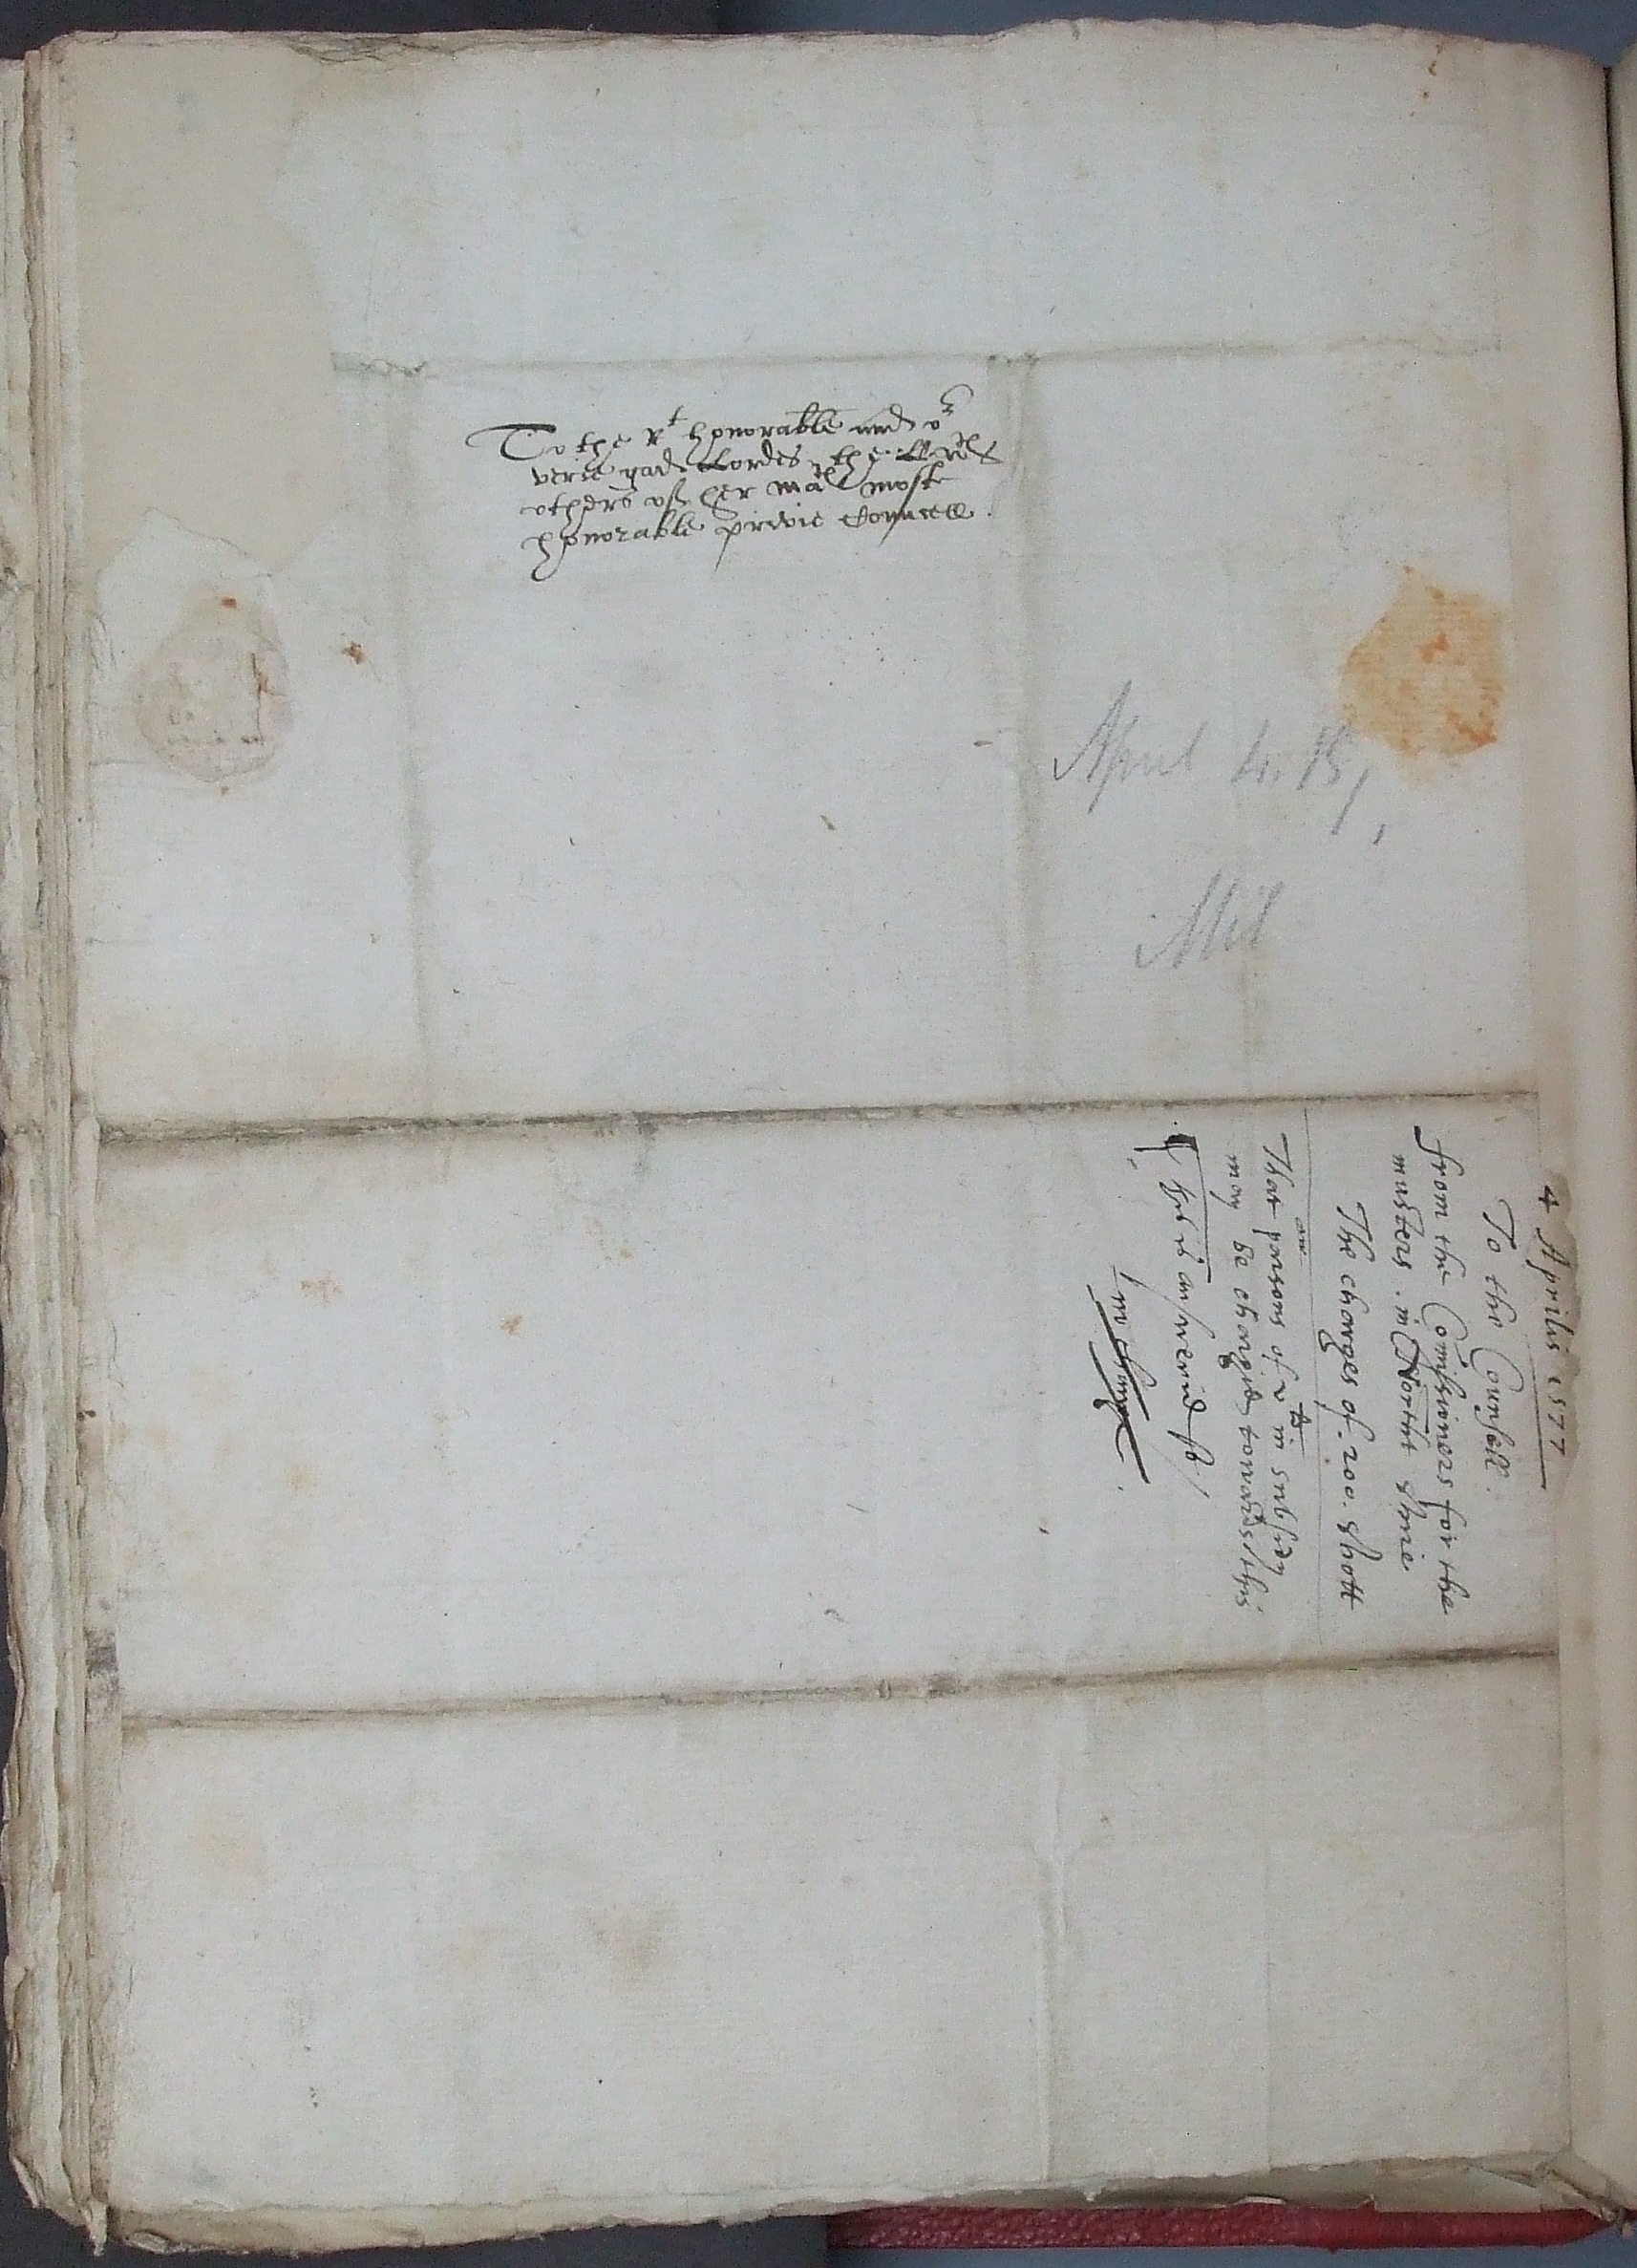 To the Rt honorable and or
verie good Lordes the LL wth
others of her mats moste
honorable privie Councell.
April 4. 15
Mil
4 Aprilis 1577
To the Counsell.
from the Comissioners for the
musters in North shire
The charges of .200. shott
That persons of in subsidy
may be charged towards this
answerid